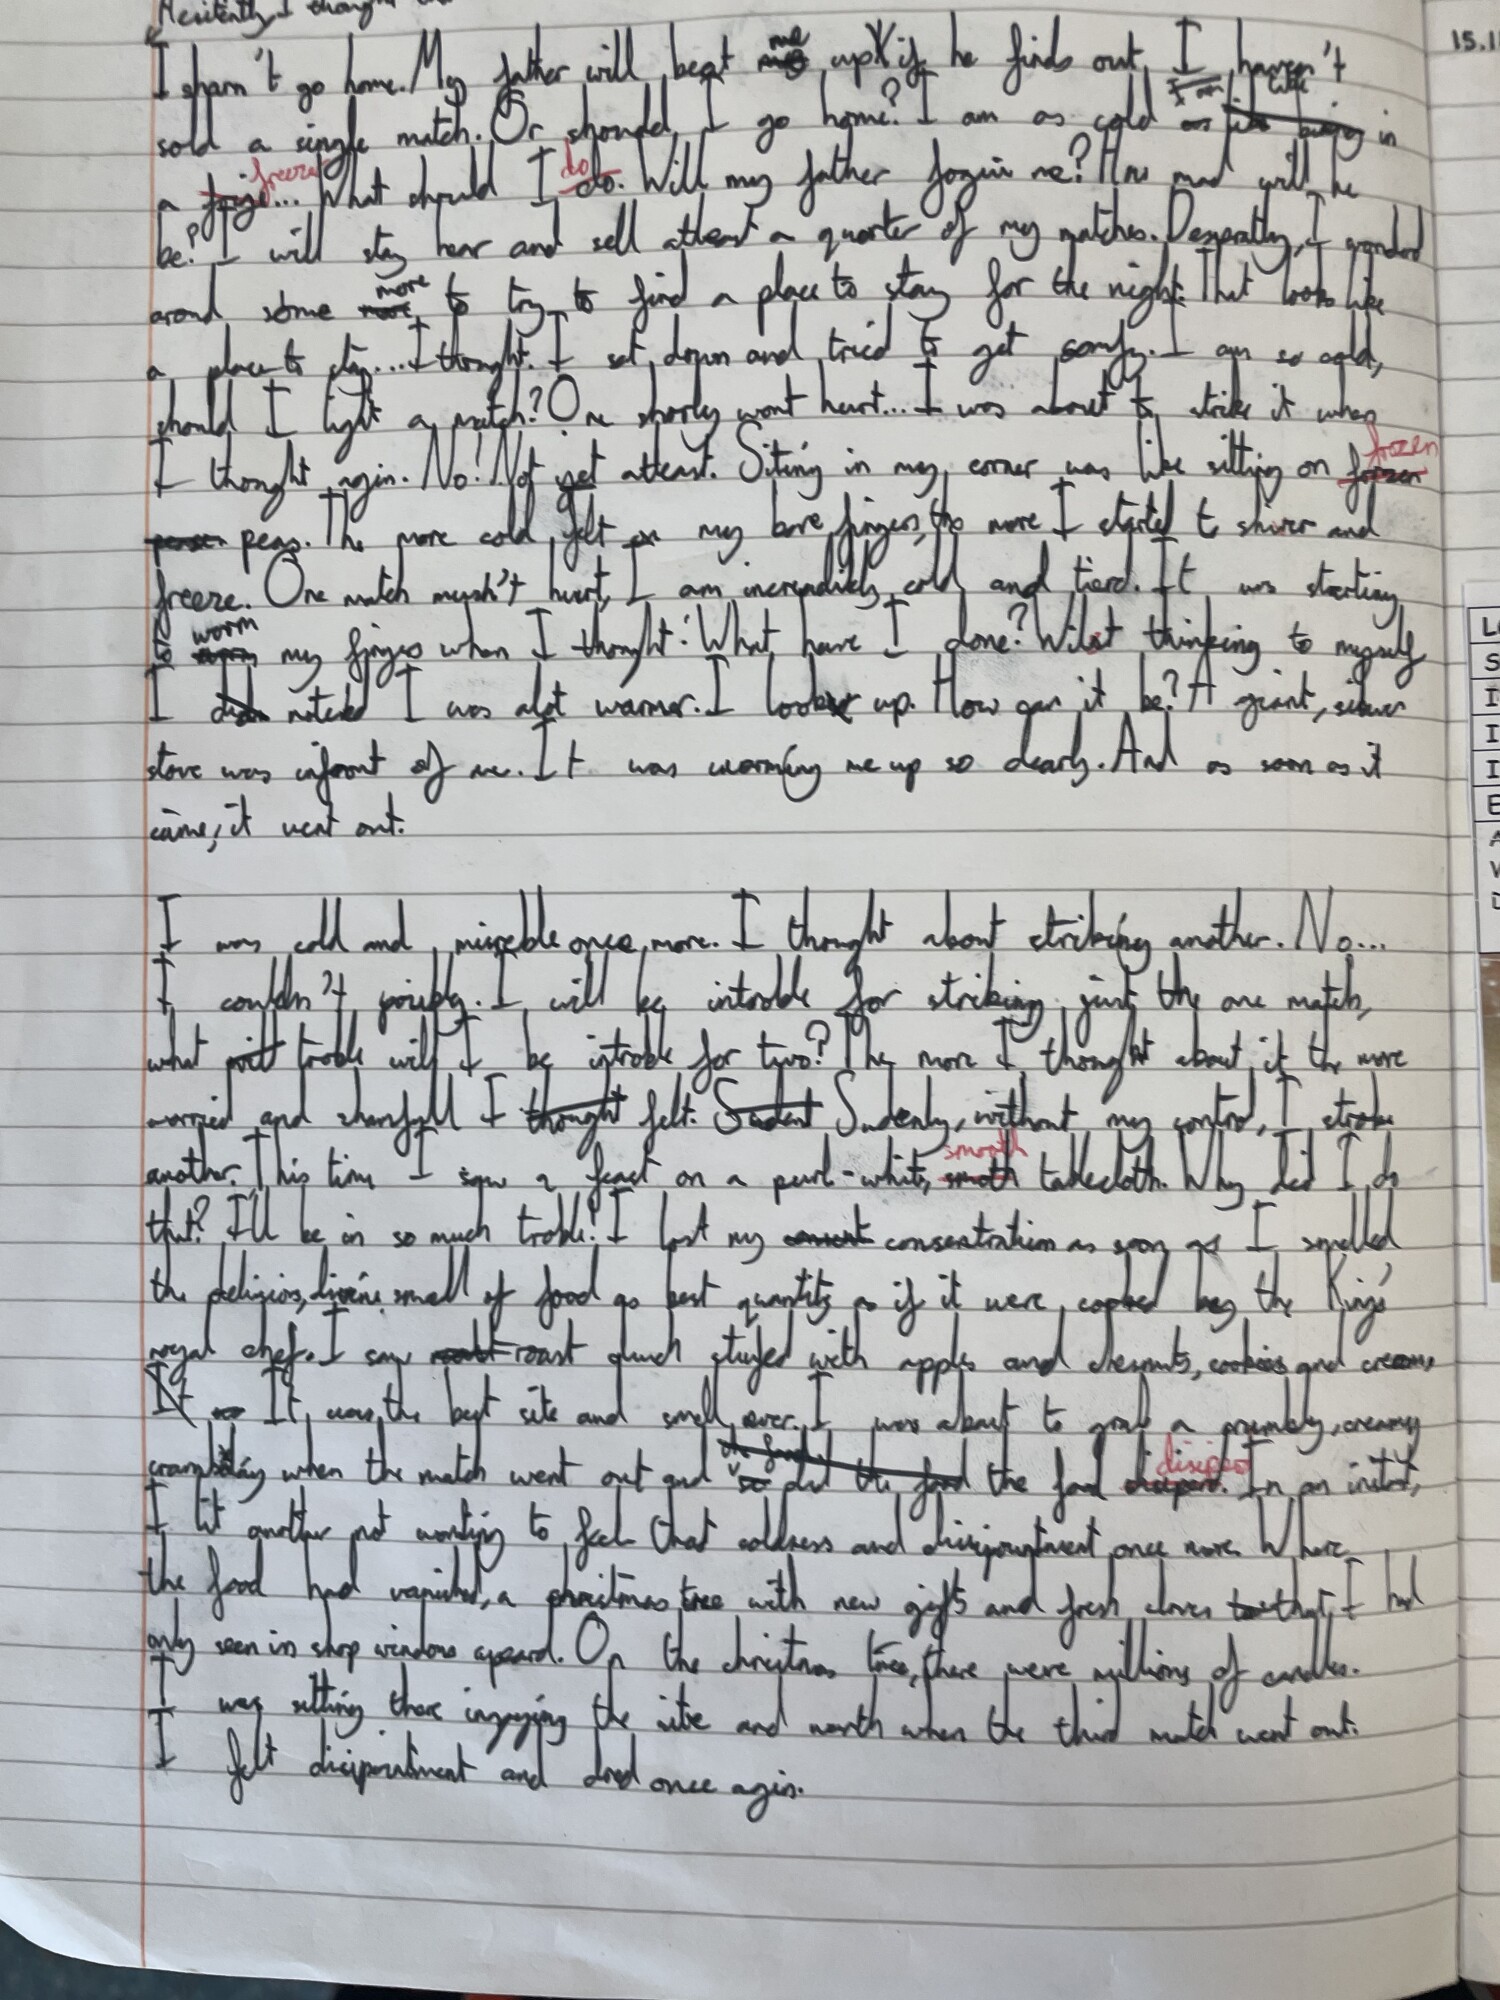 I thought
I sharn't go home. My father will beat me up if he finds out I haven't
sold a single match. Or should I go home? I am as cold in
a freeze... What should I do. Will my father forgive me? How mad will he
be? I will stay hear and sell atleast a quarter of my matches. Desperatly, I wonderd
arond some more to try to find a place to stay for the night. That looks like
a place to stay... I thought. I sat down and tried to get comfy. I am so cold,
should I light a match? One shorly wont hurt... I was about to strike it when
I thought agin. No! Not yet atleast. Siting in my corner was like sitting on frozen
peas. The more cold felt on my bare fingers, the more I started to shiver and
freeze. One match mushn't hurt, I am incredibly cold and tierd. It was starting
to worm my fingers when I thought: What have I done? Wilst thinking to myself
I noticed I was alot warmer. I look up. How can it be? A giant, silver
stove was infront of me. It was warming me up so dearly. And as soon as it
came, it went out.
I was cold and misreble once more. I thought about striking another. No...
I couldn't posibly. I will be introble for striking just the one match,
what troble will I be introble for two? The more I thought about it the more
worried and shamfull I felt. Sudenly, without my control, I stroke
another. This time I saw a feast on a purl-white, smooth tablecloth. Why did I do
that? I'll be in so much troble! I lost my consentration as soon as I smelled
the delicios, divine smell of food go best quantity as if it were cooked by the King's
royal chef. I saw roast duck stufed with apples and chesnuts, cookies and cream.
It was the best site and smell ever. I was about to grab a crumbly, creamy
when the match went out and so did the food In an instant,
I lit another not wanting to feel that coldness and disipountment once more. Where
the food had vanished, a christmas tree with new gifts and fresh cloves that I had
only seen in shop windows apeard. On the christmas tree, there were millions of candles.
I was sitting there injoying the site and warth when the third match went out.
I felt disipointment and dred once agin.
15.11